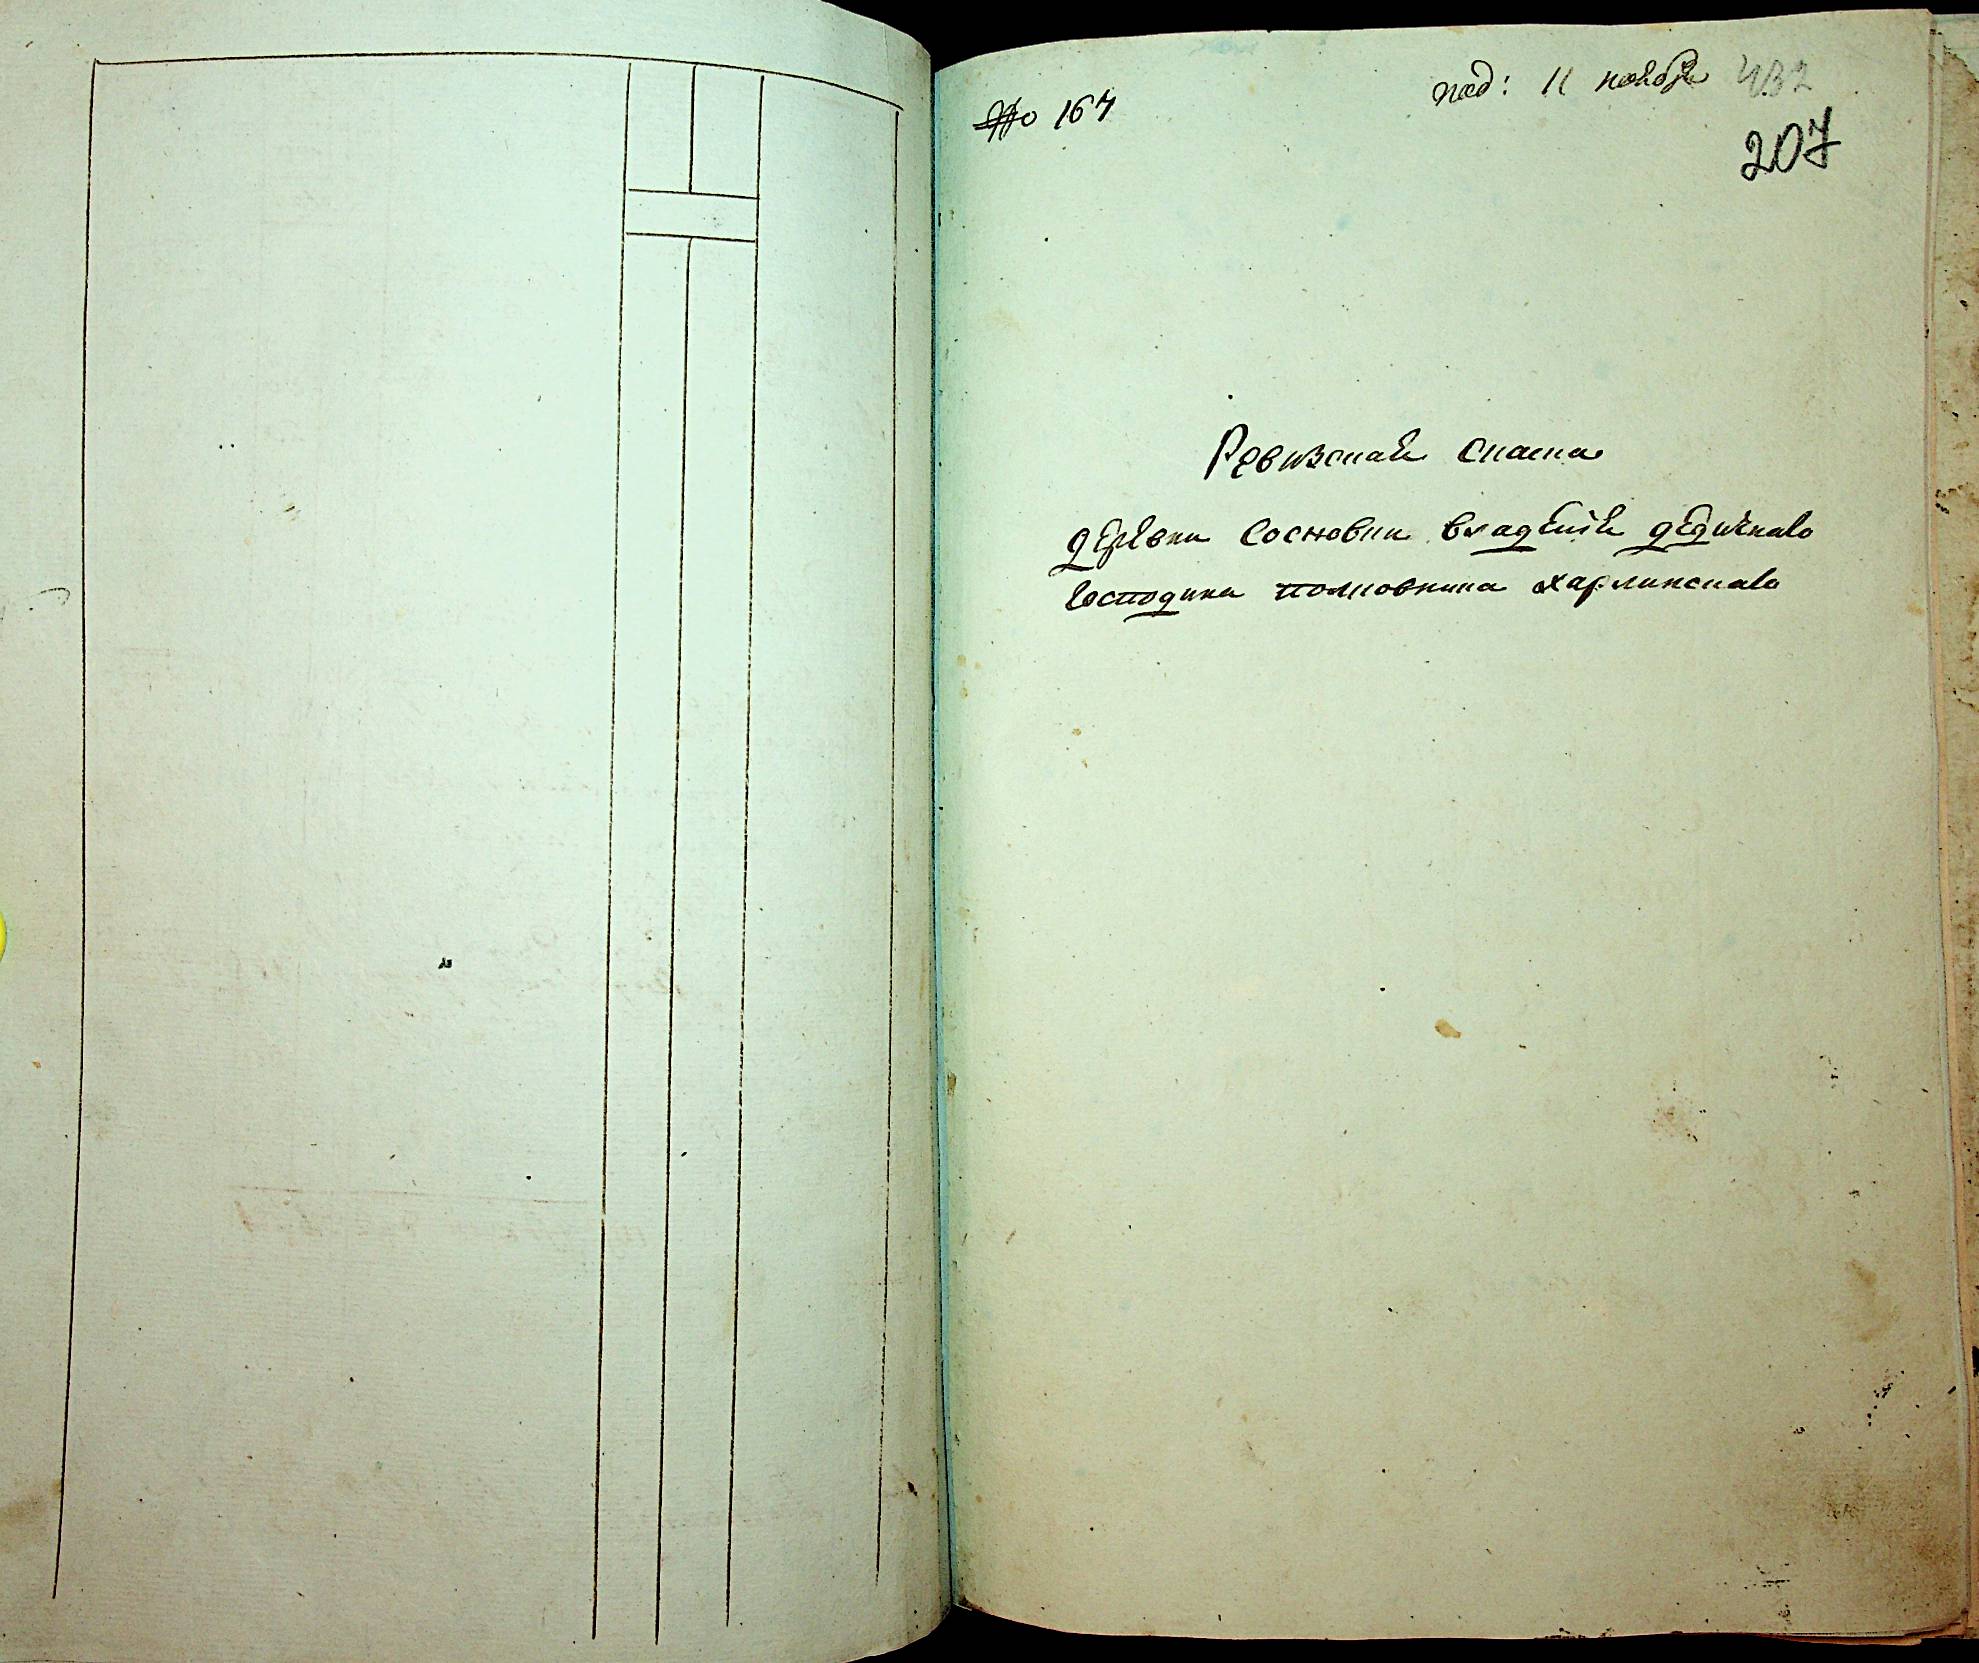 № 167
под: 11 ноября 432
207
Ревизская Скаска
деревни Сосновки владения дедичнаго
господина полковника Харлинскаго